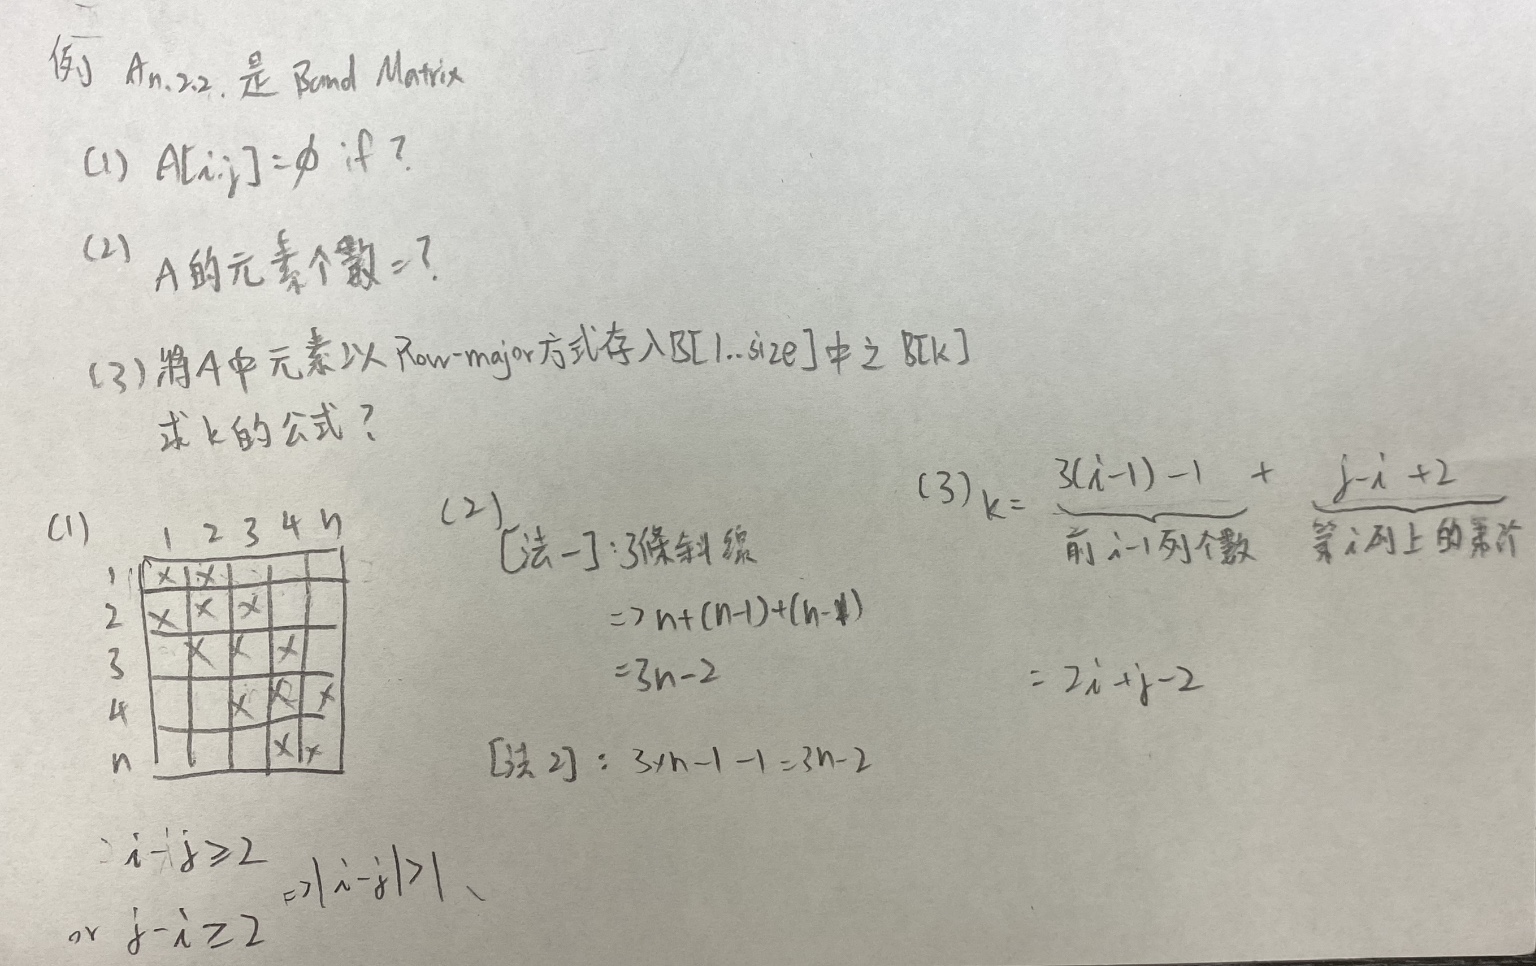 例 An.2.2. 是 Band Matrix
(1) A[i.j] = ϕ if ?
(2) A的元素个數 = ?
(3) 將A中元素以 Row-major方式存入B[1..size]中之 B[k]
求 k 的公式?
(1)
1 2 3 4 n
1 x x
2 x x x
3 x x x
4 x x x
n x x
i-j ≥ 2
or j-i ≥ 2
=> |i-j| > 1、
(2)
[法一]: 3條斜線
=> n+(n-1)+(n-1)
= 3n-2
[法2]: 3×n-1-1 = 3n-2
(3) k = 3(i-1)-1 + j-i+2
前 i-1列个數 第 i 列上的
= 2i+j-2